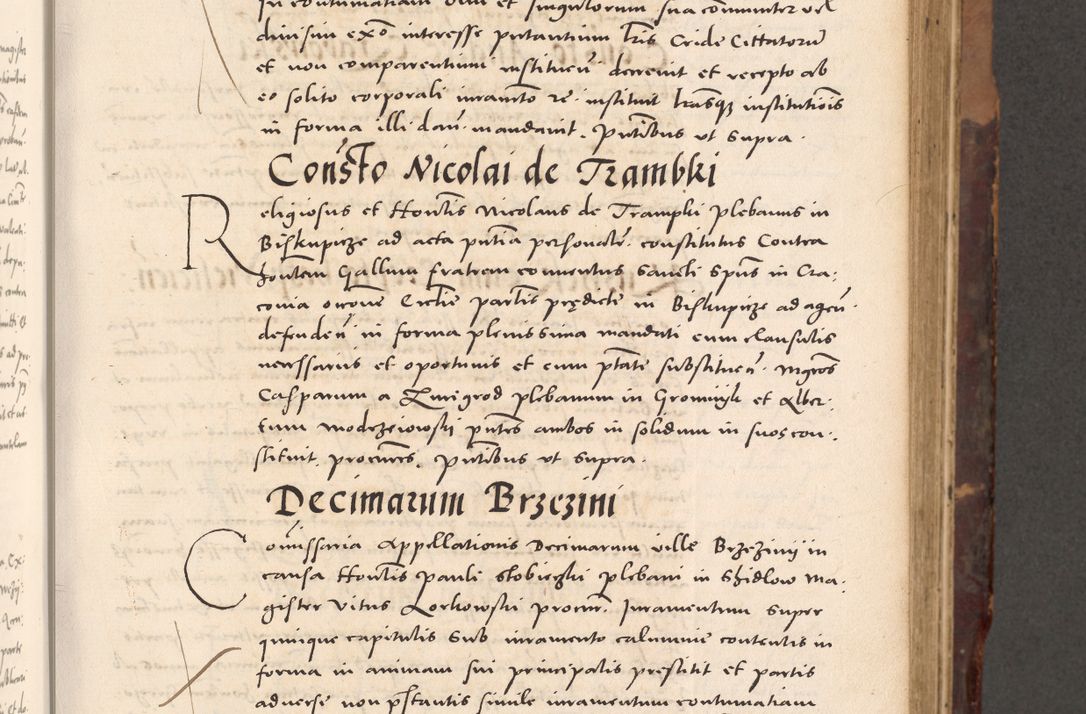 in contumatiam omni et singulorum sua communiter vel
diuisim exo interesse putantium Lris Cride Cittatorum
et non comparentium instituen decreuit et recepto ab
eo solito corporali iuramto re instituit Lrasq; institutiois
in forma illi dan mandauit. Pntibus vt supra.
Consto Nicolai de Trambki
Religiosus et Honlis Nicolaus de Trampki plebanus in
Biskupicze ad acta pntia personalr constitutus Contra
fratrem Gallum fratrem conuentus Sancti Spus in Cra-
couia occone Ecclie parlis prędicte in Biskupicze ad agen
defenden in forma plenissima mandati cum clausulis
necessariis et oportunis et cum ptate substituen Mgros
Casparum a Zmigrod plebanum in et Alber-
tum Modrzeiowski pntes ambos in solidum in suos con-
stituit procures. Pntibus vt supra.
Decimarum Brzezini
Comissaria Appellationis Decimarum ville Brzezinij in
causa Honlis pauli plebani in Szidlow Ma-
gister Vitus procur. Iuramentum super
quinque capitulis sub iuramento calumnie contentis in
forma in animam sui principalis prestitit et partis
aduerse non pstantis simile iuramentum contumatiam